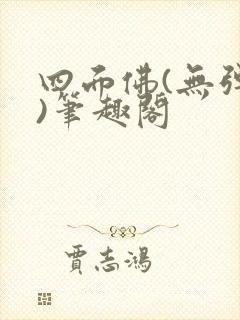 四面佛(無彈
)筆趣閣
賈志鴻